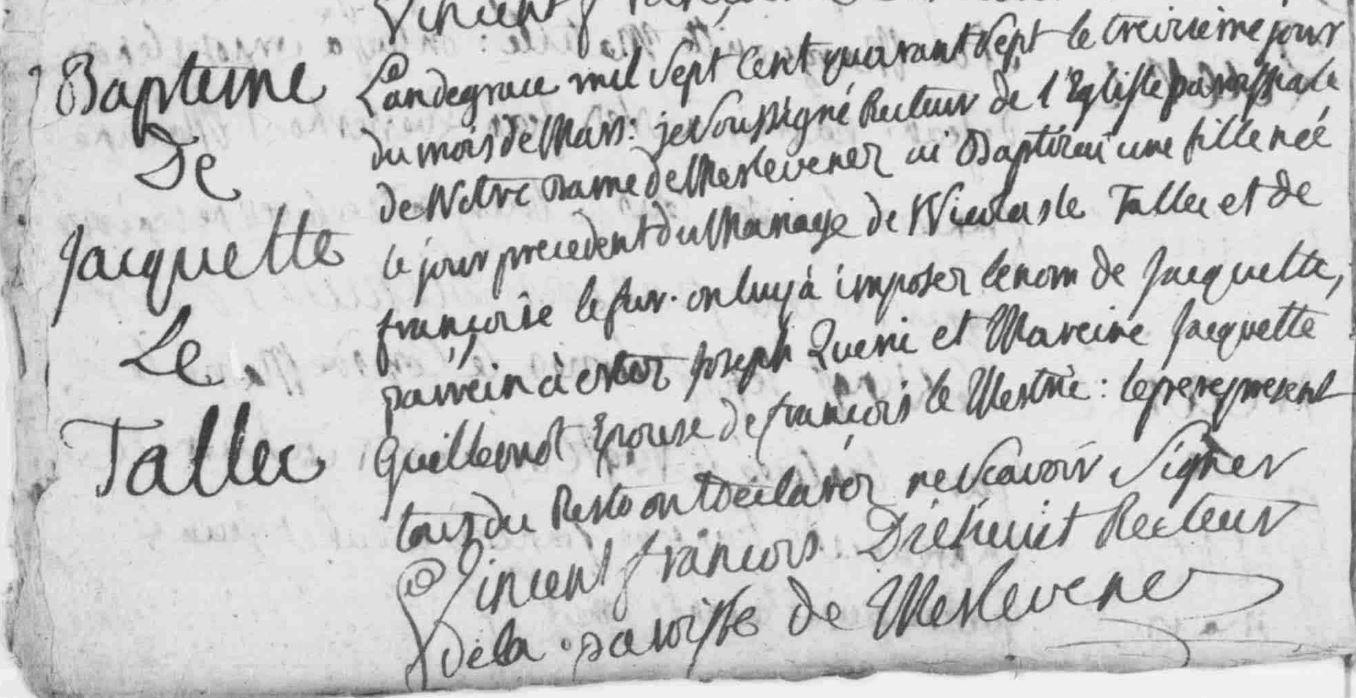 Vincent françois
Bapteme
De
Jacquette
Le
Tallec
Landegrace mil Sept Cent quarant Sept le treizieme jour
du mois de Mars: je Soussigné Recteur de l'Eglisse parroissiale
de Notre Dame de Merlevenez ai Baptizai une fille née
le jour precedent du Mariage de Nicolas le Tallec et de
françoise le fur. on luy à imposer le nom de Jacquette,
parrein à ester Joseph Queric et Mareine Jacquette
Guillemot Epouse de françois le Mestric: le pere present
tous du Resto ont déclarér ne Scavoir Signer
Vincent françois Dréhuiet Recteur
de la paroisse de Merlevenez